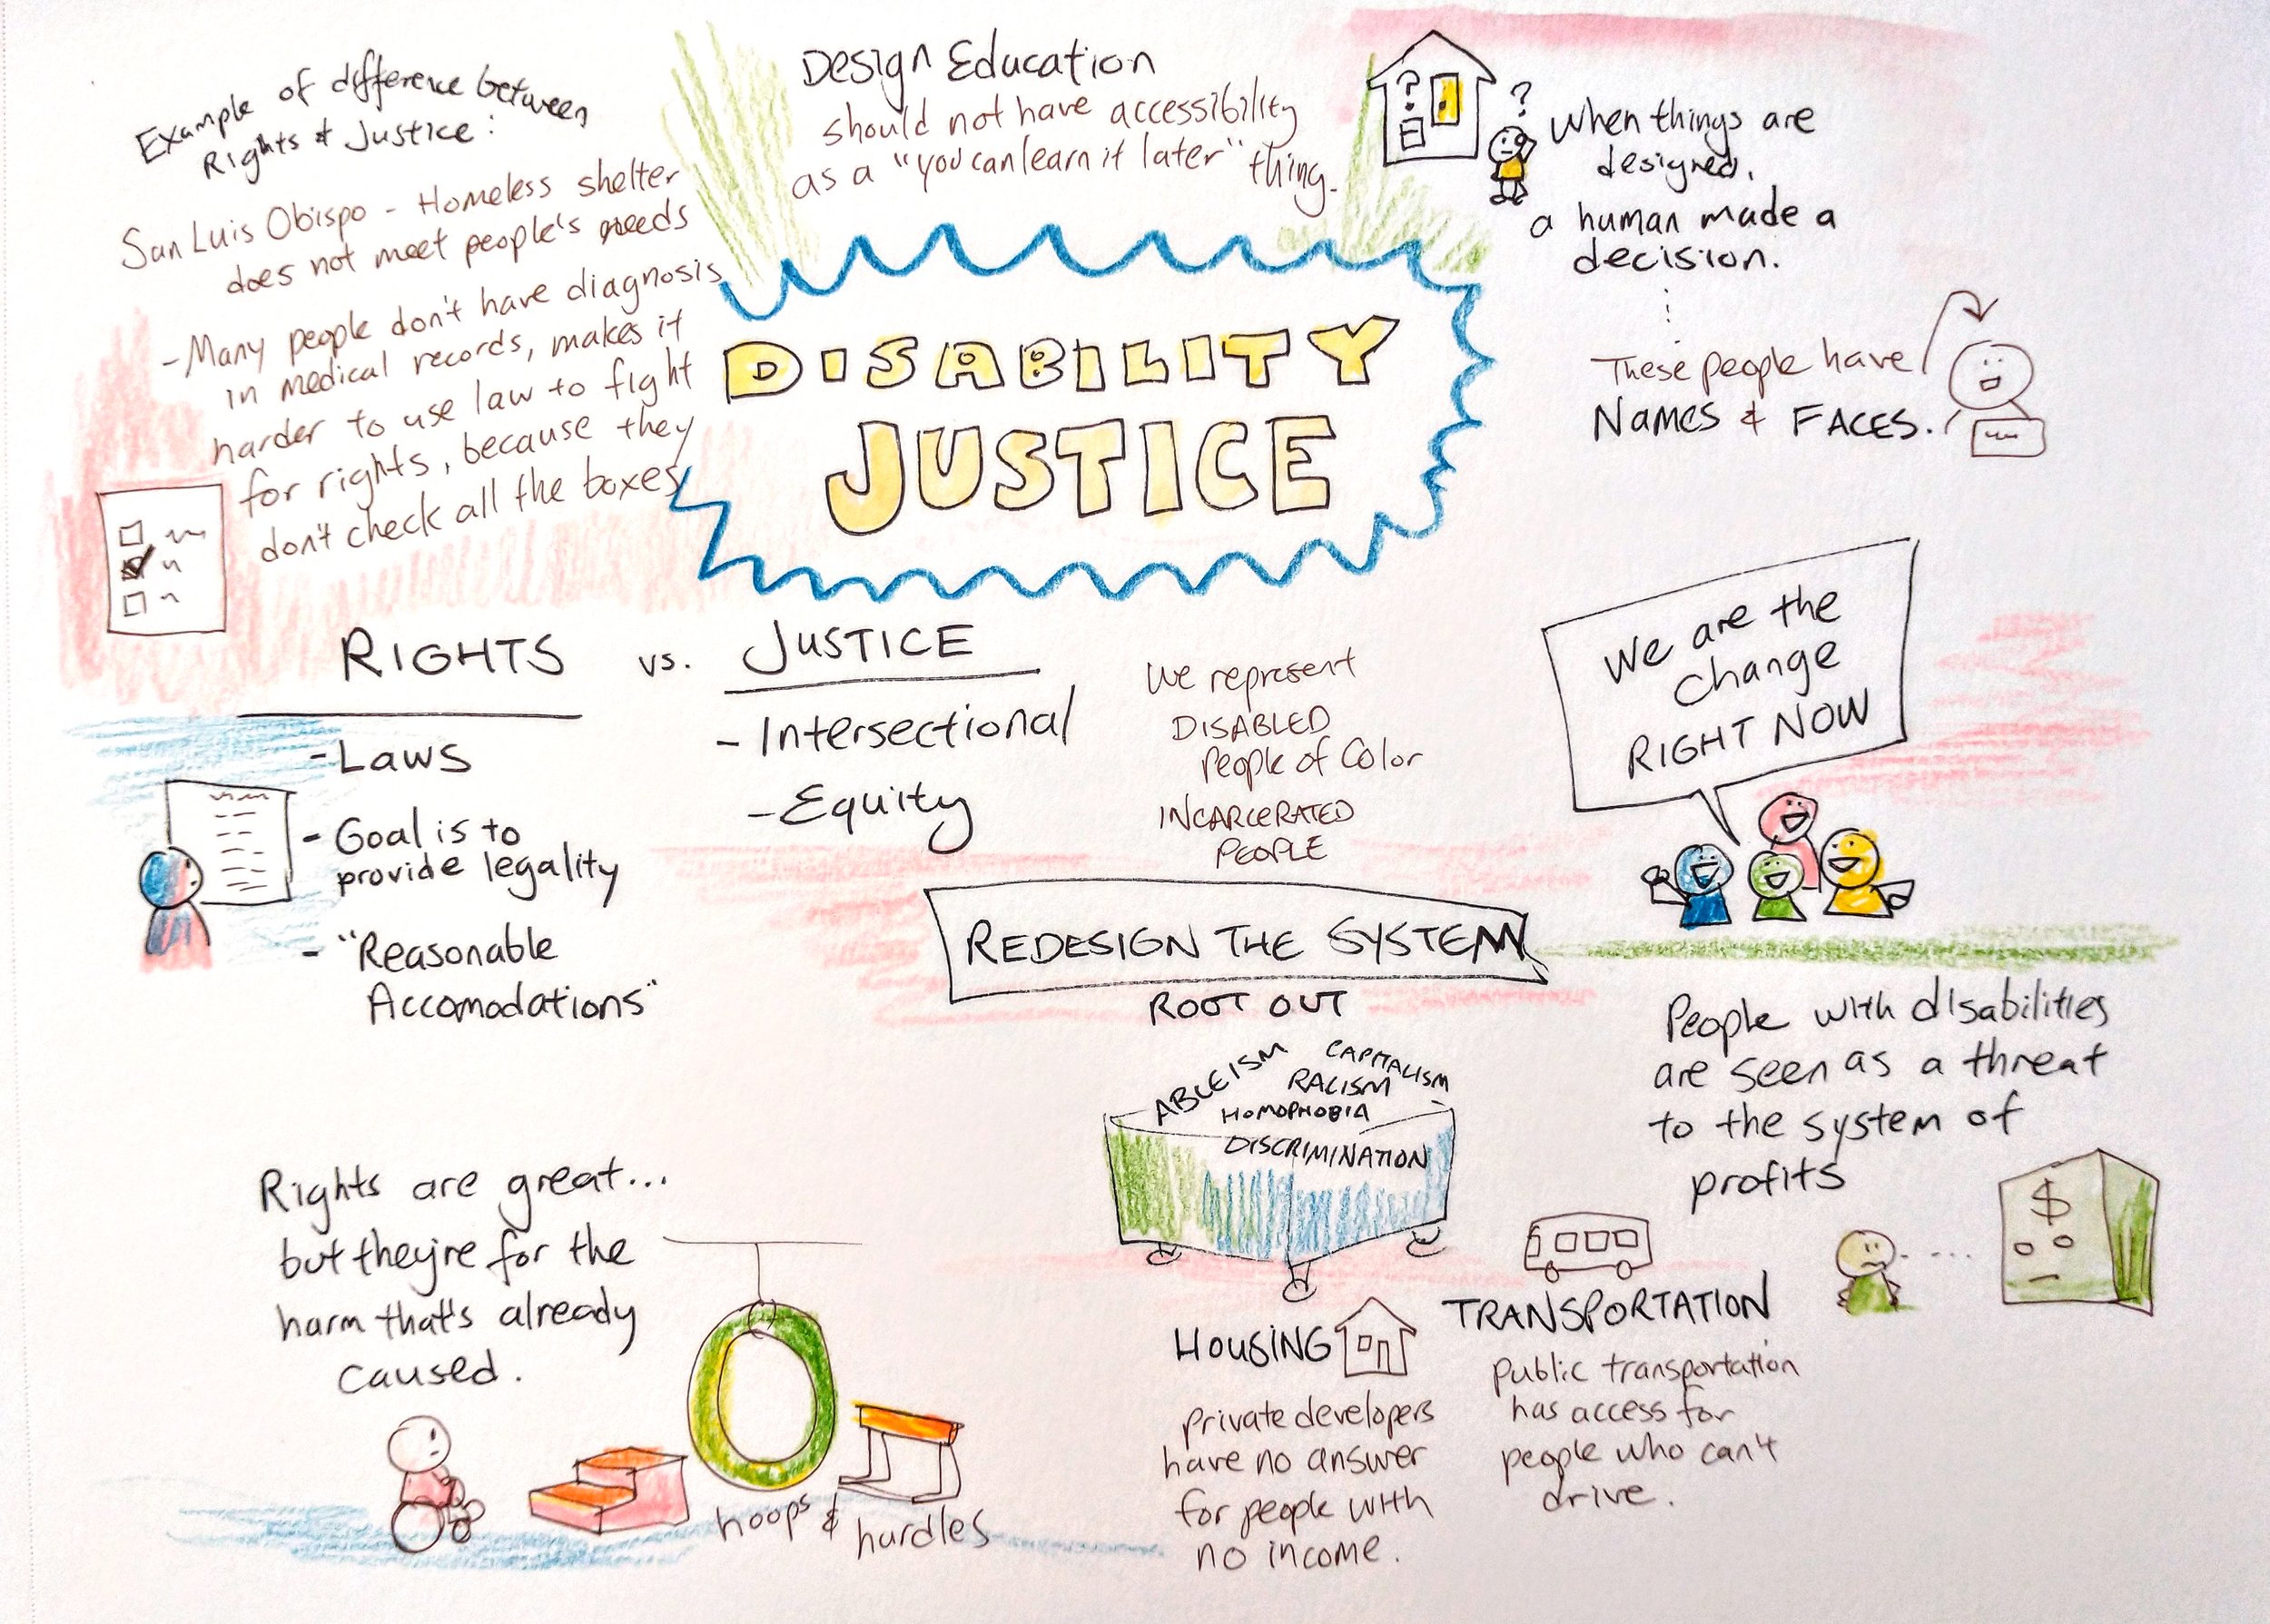 Example of difference between
Rights & Justice:
San Luis Obispo - Homeless shelter
does not meet people's needs
- Many people don't have diagnosis
in medical records, makes it
harder to use law to fight
for rights, because they
don't check all the boxes
Design Education
should not have accessibility
as a "you can learn it later" thing.
When things are
designed,
a human made a
decision.
These people have
NAMES & FACES.
DISABILITY
JUSTICE
RIGHTS vs. JUSTICE
- Laws
- Goal is to
provide legality
- "Reasonable
Accomodations"
- Intersectional
- Equity
We represent
DISABLED
People of Color
INCARCERATED
PEOPLE
We are the
change
RIGHT NOW
REDESIGN THE SYSTEM
ROOT OUT
ABLEISM
CAPITALISM
RACISM
HOMOPHOBIA
DISCRIMINATION
People with disabilities
are seen as a threat
to the system of
profits
$
Rights are great...
but they're for the
harm that's already
caused.
hoops &
hurdles
HOUSING
private developers
have no answer
for people with
no income.
TRANSPORTATION
public transportation
has access for
people who can't
drive.